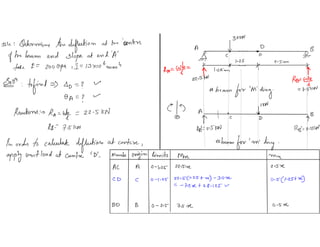 Determine the deflection at the centre
of the beam and slope at end 'A'.
Take E = 200 GPa, I = 13×10⁶ mm⁴
To find ⇒ Δ_D = ? ✓
θ_A = ? ✓
Reactions :- R_A = 22.5 kN
R_B = 7.5 kN
In order to calculate deflection at centre,
apply unit load at centre 'D'.
30kN
A C D B
1.25m 1.25 2.5m
R_A = 22.5kN
R_B = 7.5kN
M beam for 'M' diag.
1kN
A C D B
R_A = 0.5kN
M beam for 'm' diag.
origin limits Mx mx
AC A 0-1.25 22.5x 0.5x
CD C 0-1.25 22.5(1.25+x) - 30x 0.5(1.25+x)
= -7.5x + 28.125 ✓
BD B 0-2.5 7.5x 0.5x